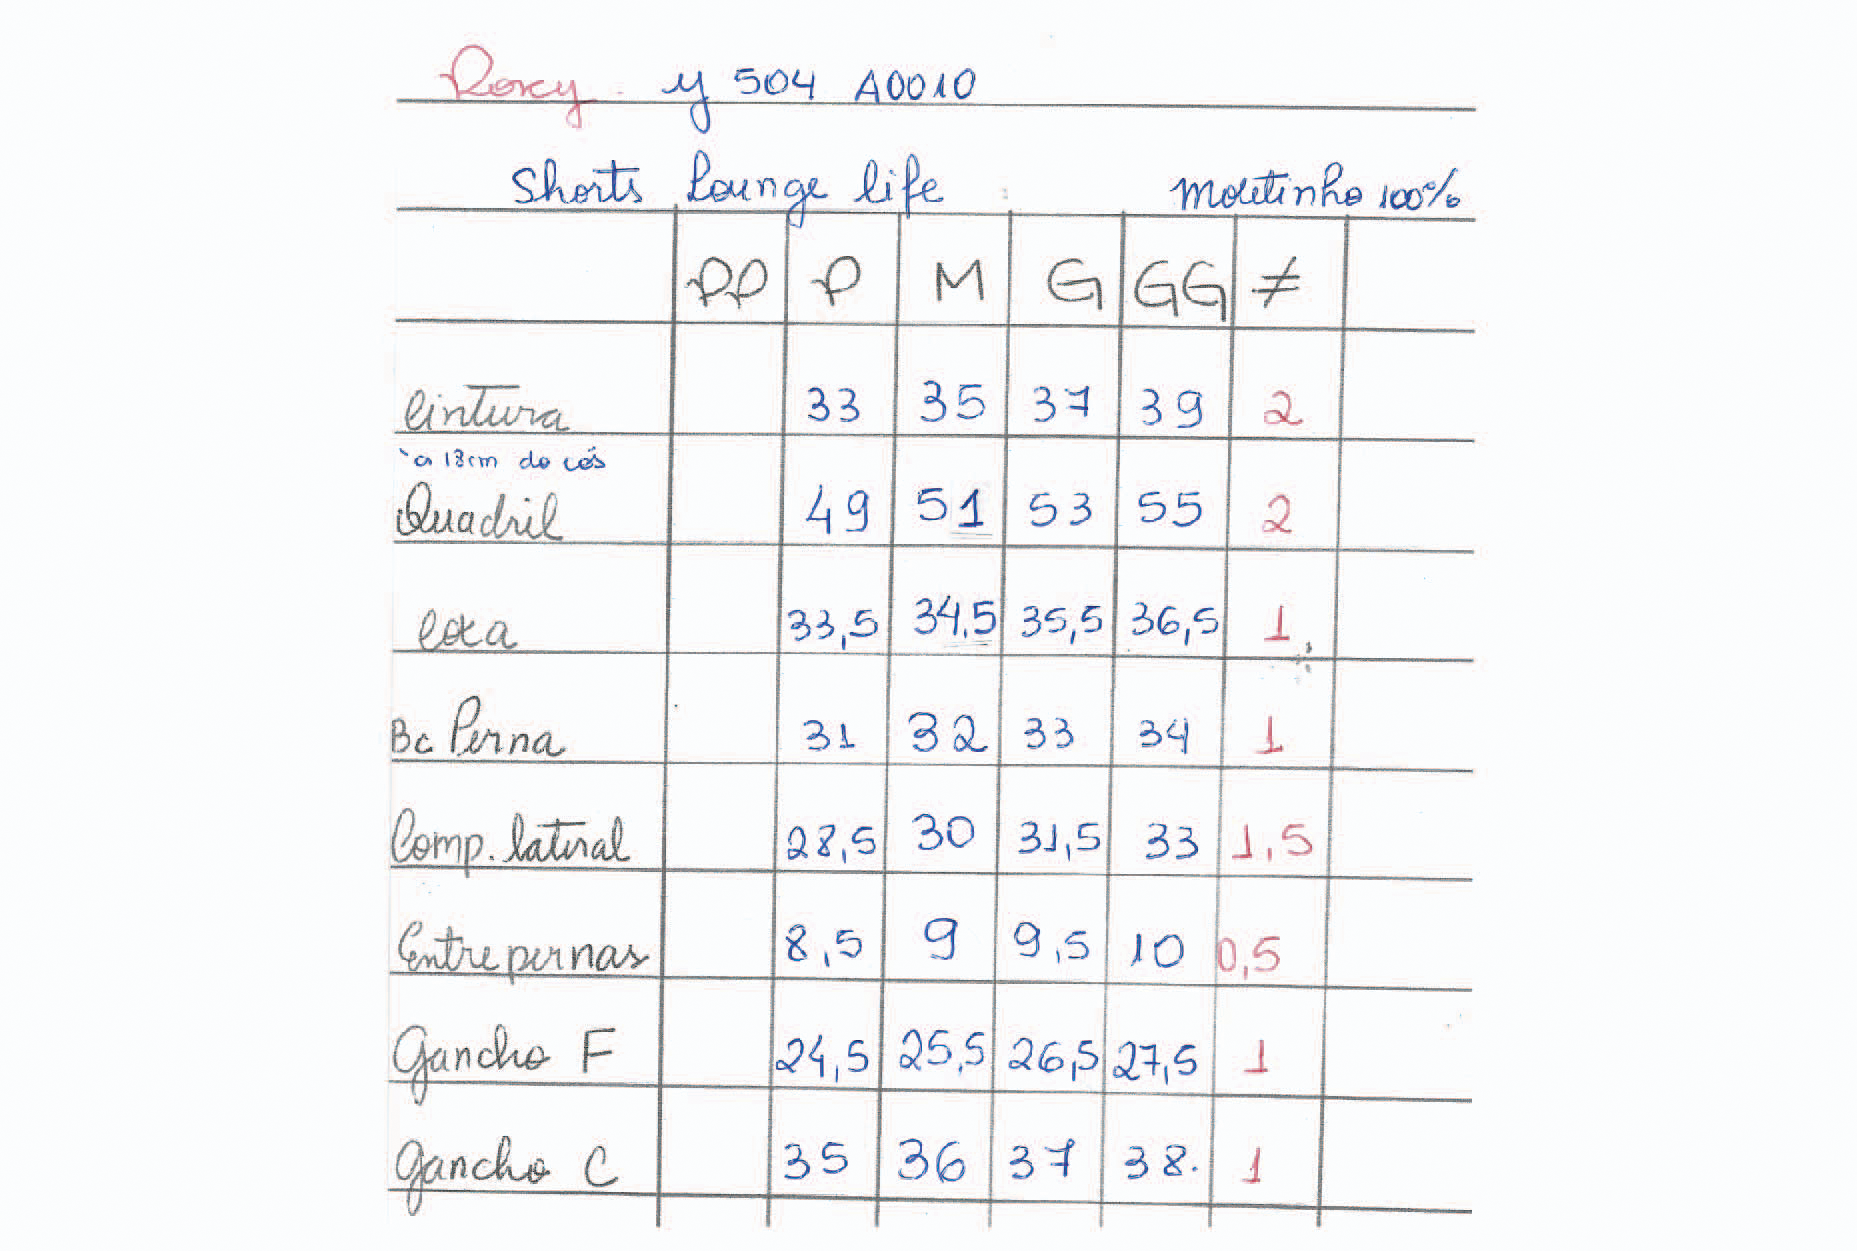 Roxy. Y 504 A0010
Shorts Lounge life Moletinho 100%
PP P M G GG ≠
Cintura 33 35 37 39 2
a 18cm do cós
Quadril 49 51 53 55 2
Coxa 33,5 34,5 35,5 36,5 1
Bc Perna 31 32 33 34 1
Comp. lateral 28,5 30 31,5 33 1,5
Entrepernas 8,5 9 9,5 10 0,5
Gancho F 24,5 25,5 26,5 27,5 1
Gancho C 35 36 37 38. 1